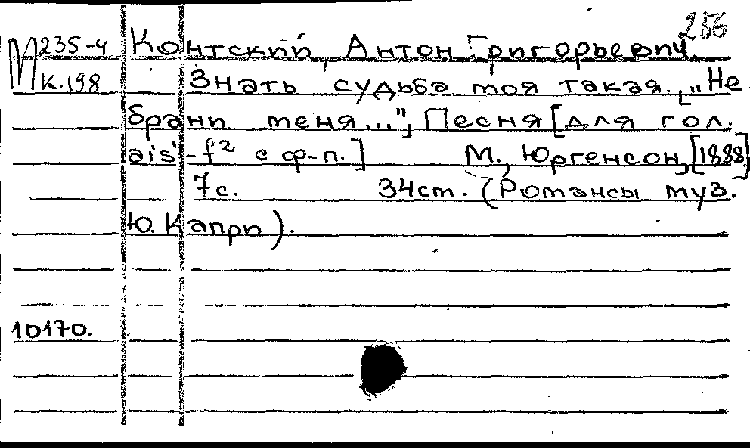 256
М 235-4
К.198
Контский, Антон Григорьевич
Знать судьба моя такая. „Не
брани меня...", Песня [для гол.
ais¹-f² с ф-п.] М., Юргенсон, [1888]
7с. 34ст. (Романсы муз.
Ю. Капри).
10170.